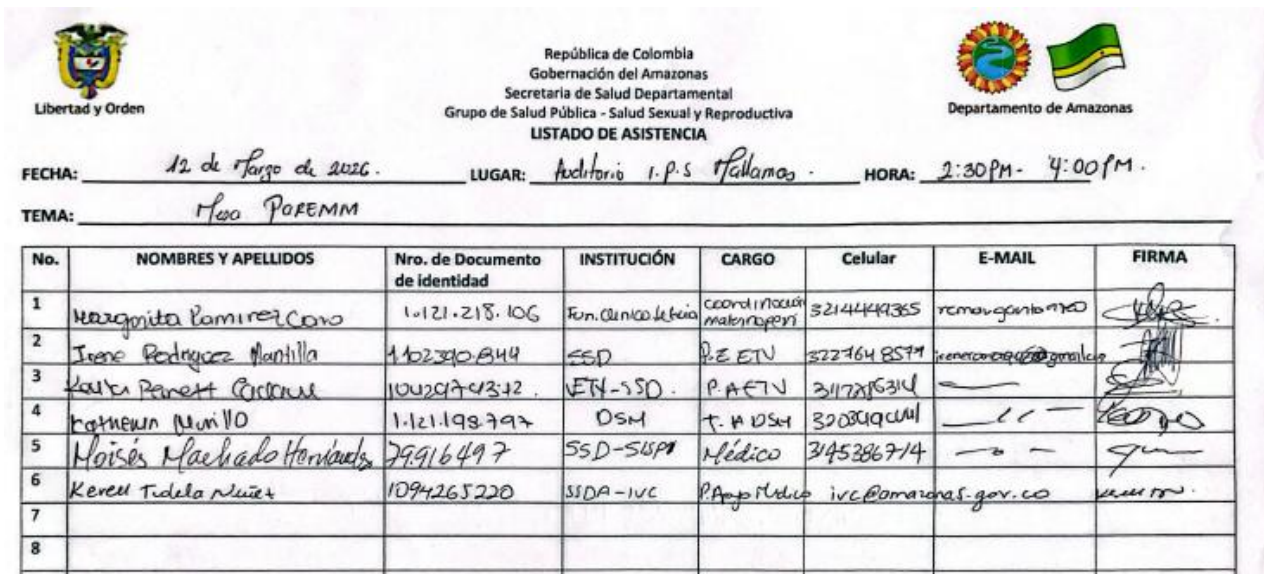 República de Colombia
Gobernación del Amazonas
Secretaria de Salud Departamental
Grupo de Salud Pública - Salud Sexual y Reproductiva
LISTADO DE ASISTENCIA
Libertad y Orden
Departamento de Amazonas
FECHA: 12 de Marzo de 2026. LUGAR: Auditorio I.P.S Mallamas. HORA: 2:30PM - 4:00PM.
TEMA: Mesa
No. NOMBRES Y APELLIDOS Nro. de Documento de identidad INSTITUCIÓN CARGO Celular E-MAIL FIRMA
1 Margarita Ramirez Caro 1.121.218.106 Fun. Clinica Leticia coordinación
2 Irene Rodriguez Mantilla 1102390844 SSD P.E ETV
3 ETV-SSD. P.A ETV
4 Katherin Murillo 1.121.198.797 DSM T. A DSM
5 Moisés Machado Hernández 79.916497 SSD-SISPI Médico 3145386714
6 Tudela Nuñez 1094265220 SSDA-IVC P. Apoyo Médico ivc@amazonas.gov.co
7
8